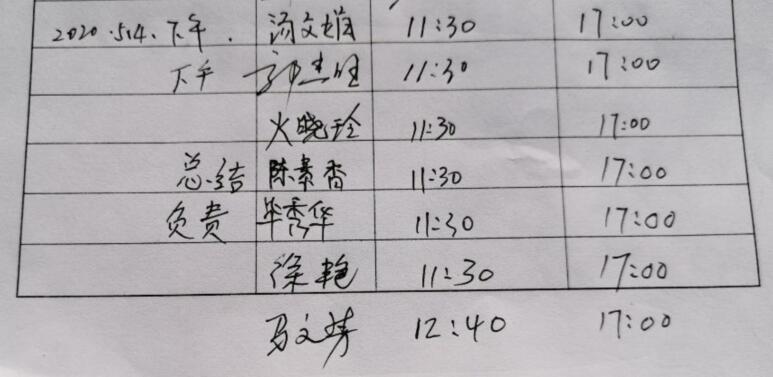 2020.5.4.下午. 汤文娟 11:30 17:00
下午 郭杰旺 11:30 17:00
火晓玲 11:30 17:00
总结 陈素香 11:30 17:00
负责 毕秀华 11:30 17:00
徐艳 11:30 17:00
马文梦 12:40 17:00